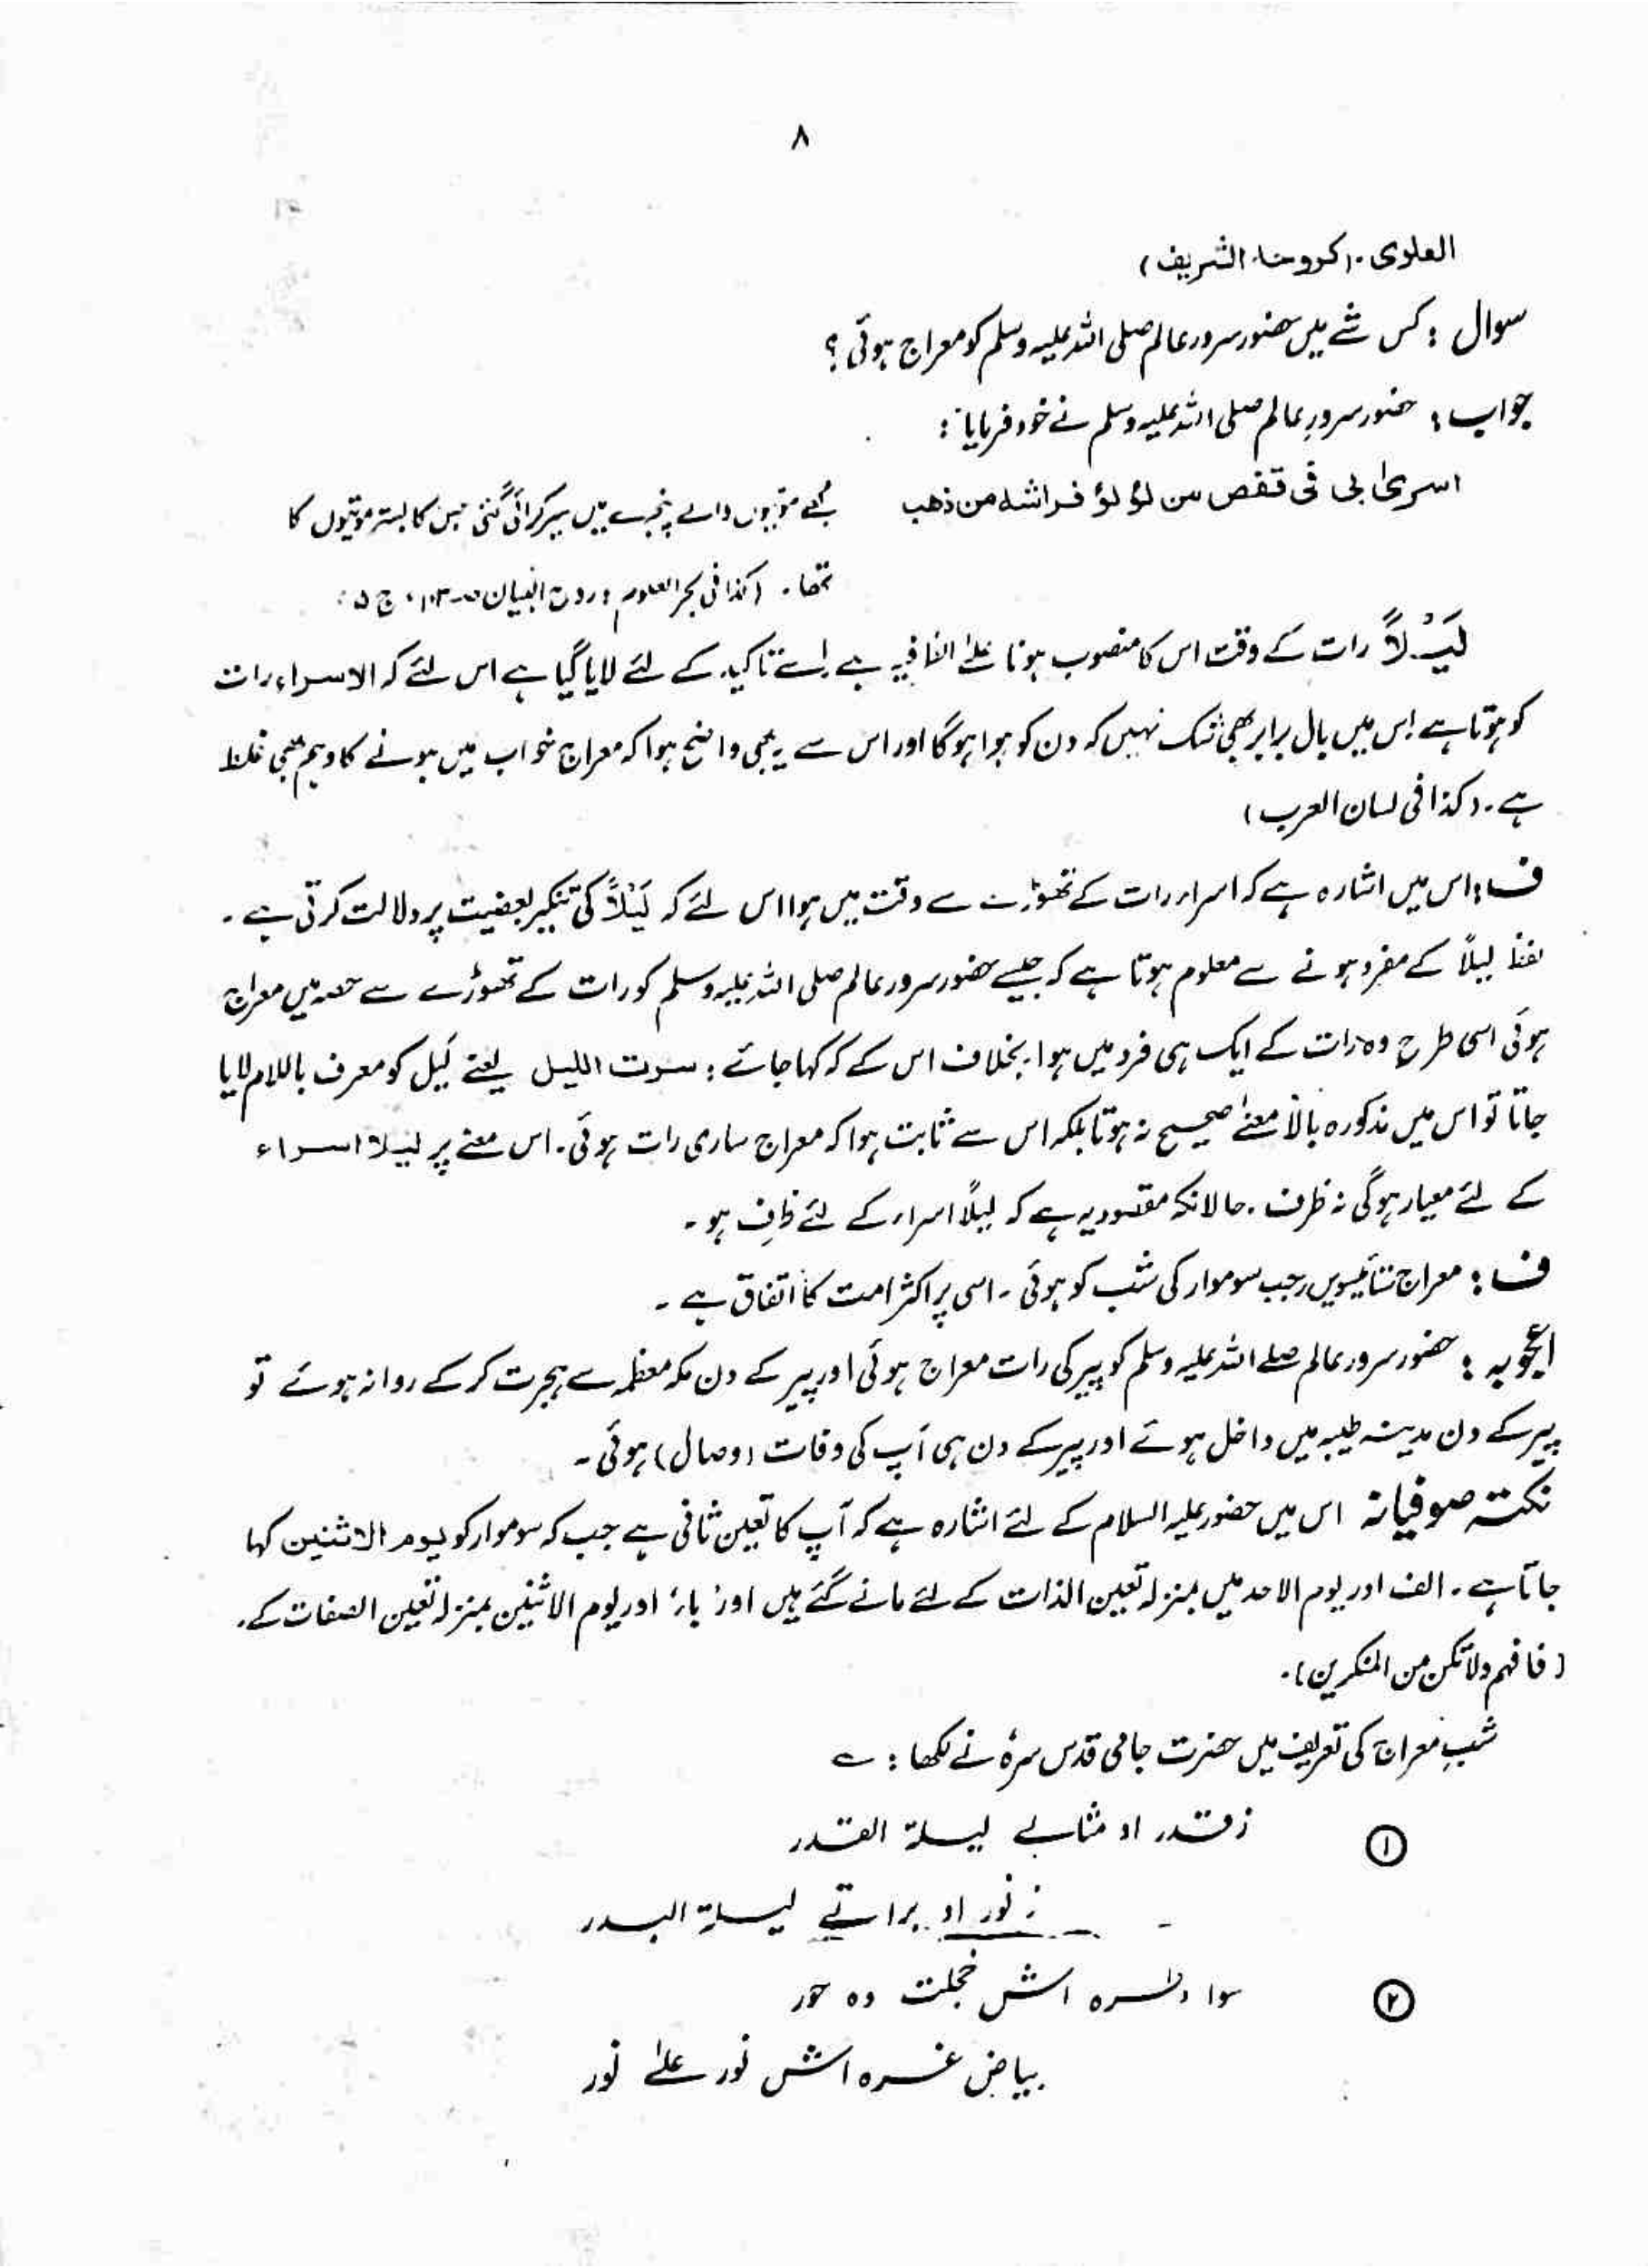 ۸
العلوی۔ (کروحہ الشریف)
سوال : کس شے میں حضور سرور عالم صلی اللہ علیہ وسلم کو معراج ہوئی ؟
جواب : حضور سرورِ عالم صلی اللہ علیہ وسلم نے خود فرمایا :
اسریٰ بی فی قفص من لؤلؤ فراشہ من ذھب
مجھے موتیوں والے پنجرے میں سیر کرائی گئی جس کا بستر موتیوں کا
تھا ۔ (کذا فی بحر العلوم ، روح البیان ص ۱۰۳، ج ۵ :
لَیْلاً رات کے وقت اس کا منصوب ہونا علیٰ الظافیہ ہے اسے تاکید کے لئے لایا گیا ہے اس لئے کہ الاسراء رات
کو ہوتا ہے اس میں بال برابر بھی شک نہیں کہ دن کو ہوا ہوگا اور اس سے یہ بھی واضح ہوا کہ معراج خواب میں ہونے کا وہم بھی غلط
ہے ۔ (کذا فی لسان العرب)
ف : اس میں اشارہ ہے کہ اسراء رات کے تھوڑے سے وقت میں ہوا اس لئے کہ لَیْلاً کی تنکیر بعضیت پر دلالت کرتی ہے ۔
لفظ لیلاً کے مفرد ہونے سے معلوم ہوتا ہے کہ جیسے حضور سرور عالم صلی اللہ علیہ وسلم کو رات کے تھوڑے سے حصہ میں معراج
ہوئی اسی طرح وہ رات کے ایک ہی فرد میں ہوا۔ بخلاف اس کے کہ کہا جائے : سرت اللیل یعنے لَیل کو معرف باللام لایا
جاتا تو اس میں مذکورہ بالا معنےٰ صحیح نہ ہوتا بلکہ اس سے ثابت ہوا کہ معراج ساری رات ہوئی۔ اس معنے پر لیلا اسراء
کے لئے معیار ہوگی نہ ظرف ۔ حالانکہ مقصود یہ ہے کہ لیلاً اسراء کے لئے ظرف ہو ۔
ف : معراج ستائیسویں رجب سوموار کی شب کو ہوئی ۔ اسی پر اکثر امت کا اتفاق ہے ۔
اعجوبہ : حضور سرور عالم صلے اللہ علیہ وسلم کو پیر کی رات معراج ہوئی اور پیر کے دن مکہ معظمہ سے ہجرت کر کے روانہ ہوئے تو
پیر کے دن مدینہ طیبہ میں داخل ہوئے اور پیر کے دن ہی آپ کی وفات (وصال) ہوئی ۔
نکتہ صوفیانہ اس میں حضور علیہ السلام کے لئے اشارہ ہے کہ آپ کا تعین ثانی ہے جب کہ سوموار کو یوم الاثنین کہا
جاتا ہے ۔ الف اور یوم الاحد میں بمنزلہ تعین الذات کے لئے مانے گئے ہیں اور باء اور یوم الاثنین بمنزلہ تعین الصفات کے ۔
(فافہم ولاتکن من المنکرین)۔
شبِ معراج کی تعریف میں حضرت جامی قدس سرہٗ نے لکھا : ؎
۱ زقدر او مثالے لیلۃ القدر
ز نور او براتے لیلۃ البدر
۲ سواد طرہ اش خجلت دہ حور
بیاض غرہ اش نور علیٰ نور